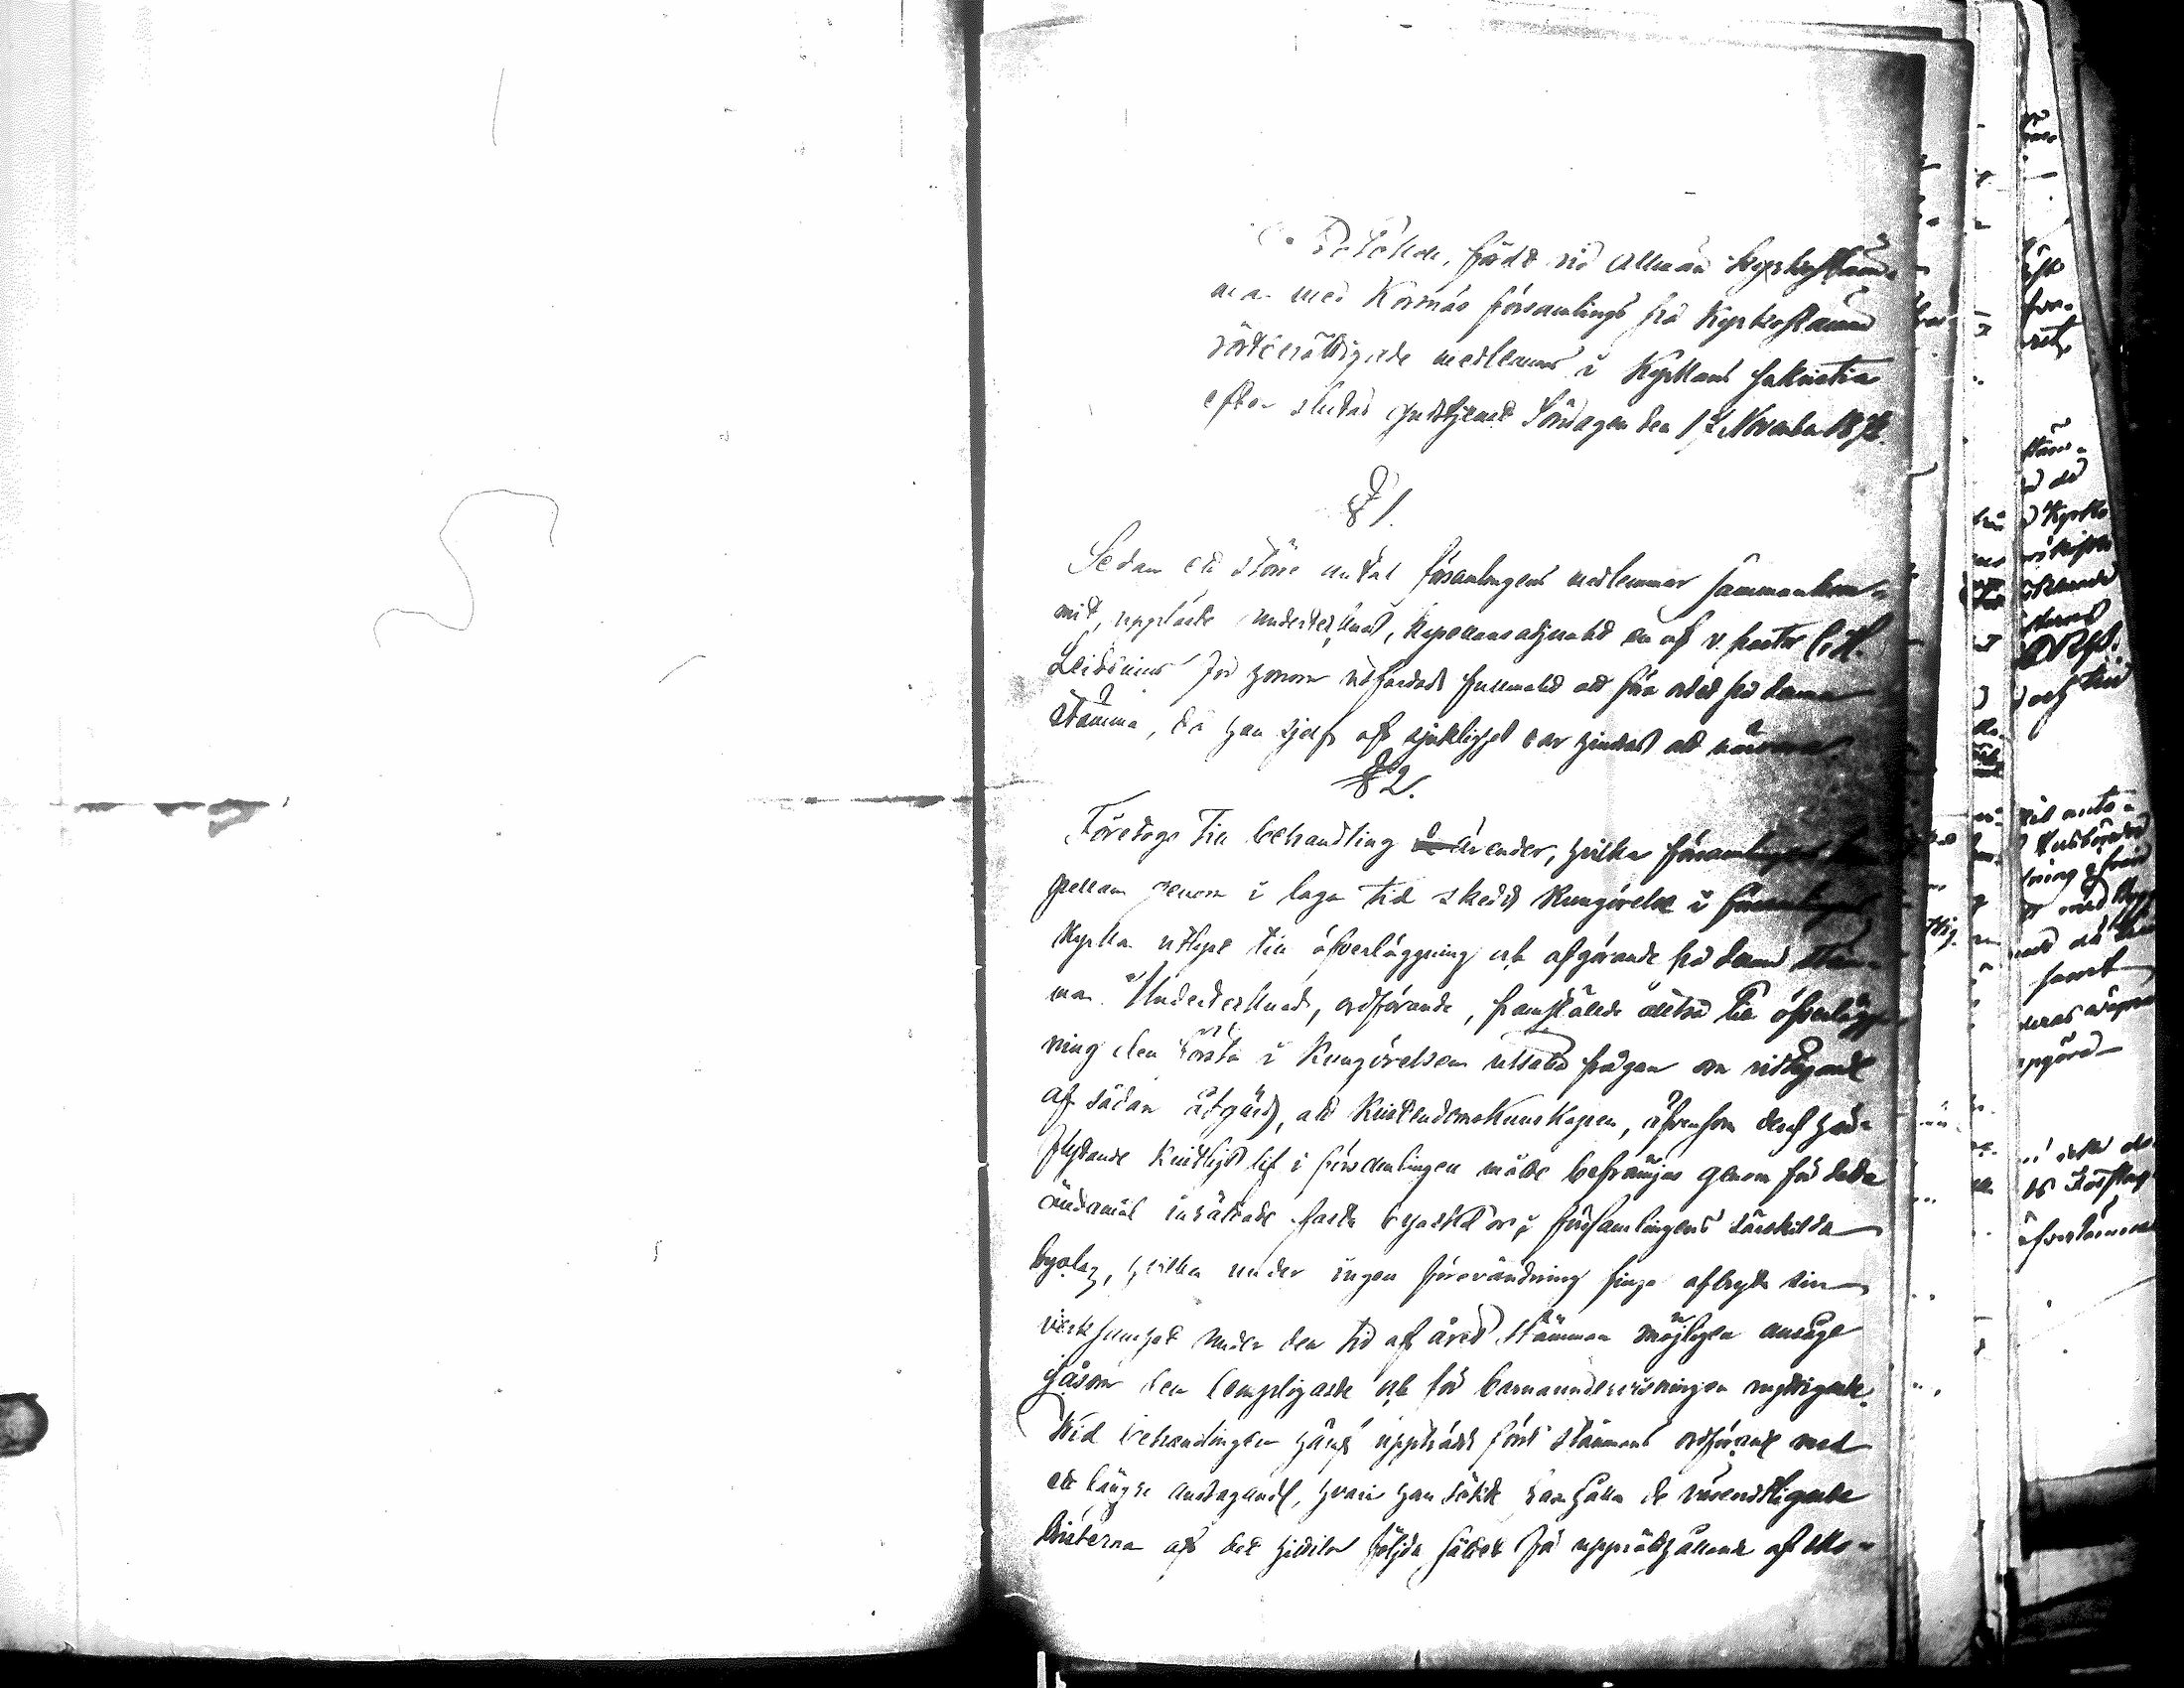 Protokoll, fördt vid allmän Kyrkostäm-
ma med Korsnäs församlings på Kyrkostämma
röstberättigade medlemmar i Kyrkans sakristia
efter slutad gudstjenst Söndagen den 17 November 1872.
§ 1.
Sedan ett större antal församlingens medlemmar sammankom-
mit, uppläste undertecknad, Kapellansadjunkt en af v. pastor C. H.
för honom utfärdad fullmakt att föra ordet på denna
stämma, då han sjelf af sjuklighet var hindrad att närvara.
§ 2.
Företogs till behandling de ärender, hvilka församlingens
genom i laga tid skedd Kungörelse i församlingens
Kyrka utlyst till öfverläggning och afgörande på denna stäm-
ma. Undertecknad, ordförande, framstälde alltså till öfverlägg-
ning den första i Kungörelsen uttalta frågan om vidtagande
af sådan åtgärd, att Kristendomskunskapen, äfvensom deraf här-
flytande Kristligt lif i församlingen måtte befrämjas genom för detta
ändamål inrättade fasta byaskolor i församlingens särskilda
byalag, hvilka under ingen förevändning finge afbryta sin
verksamhet under den tid af året stämman möjligen ansåge
såsom den lämpligaste och för barnaundervisningen nyttigaste.
Vid behandlingen häraf uppträdde först stämmans ordförande med
ett längre andragande, hvari han sökte framhålla de väsendtligaste
bristerna af det hittils följda sättet för upprätthållande af sko-